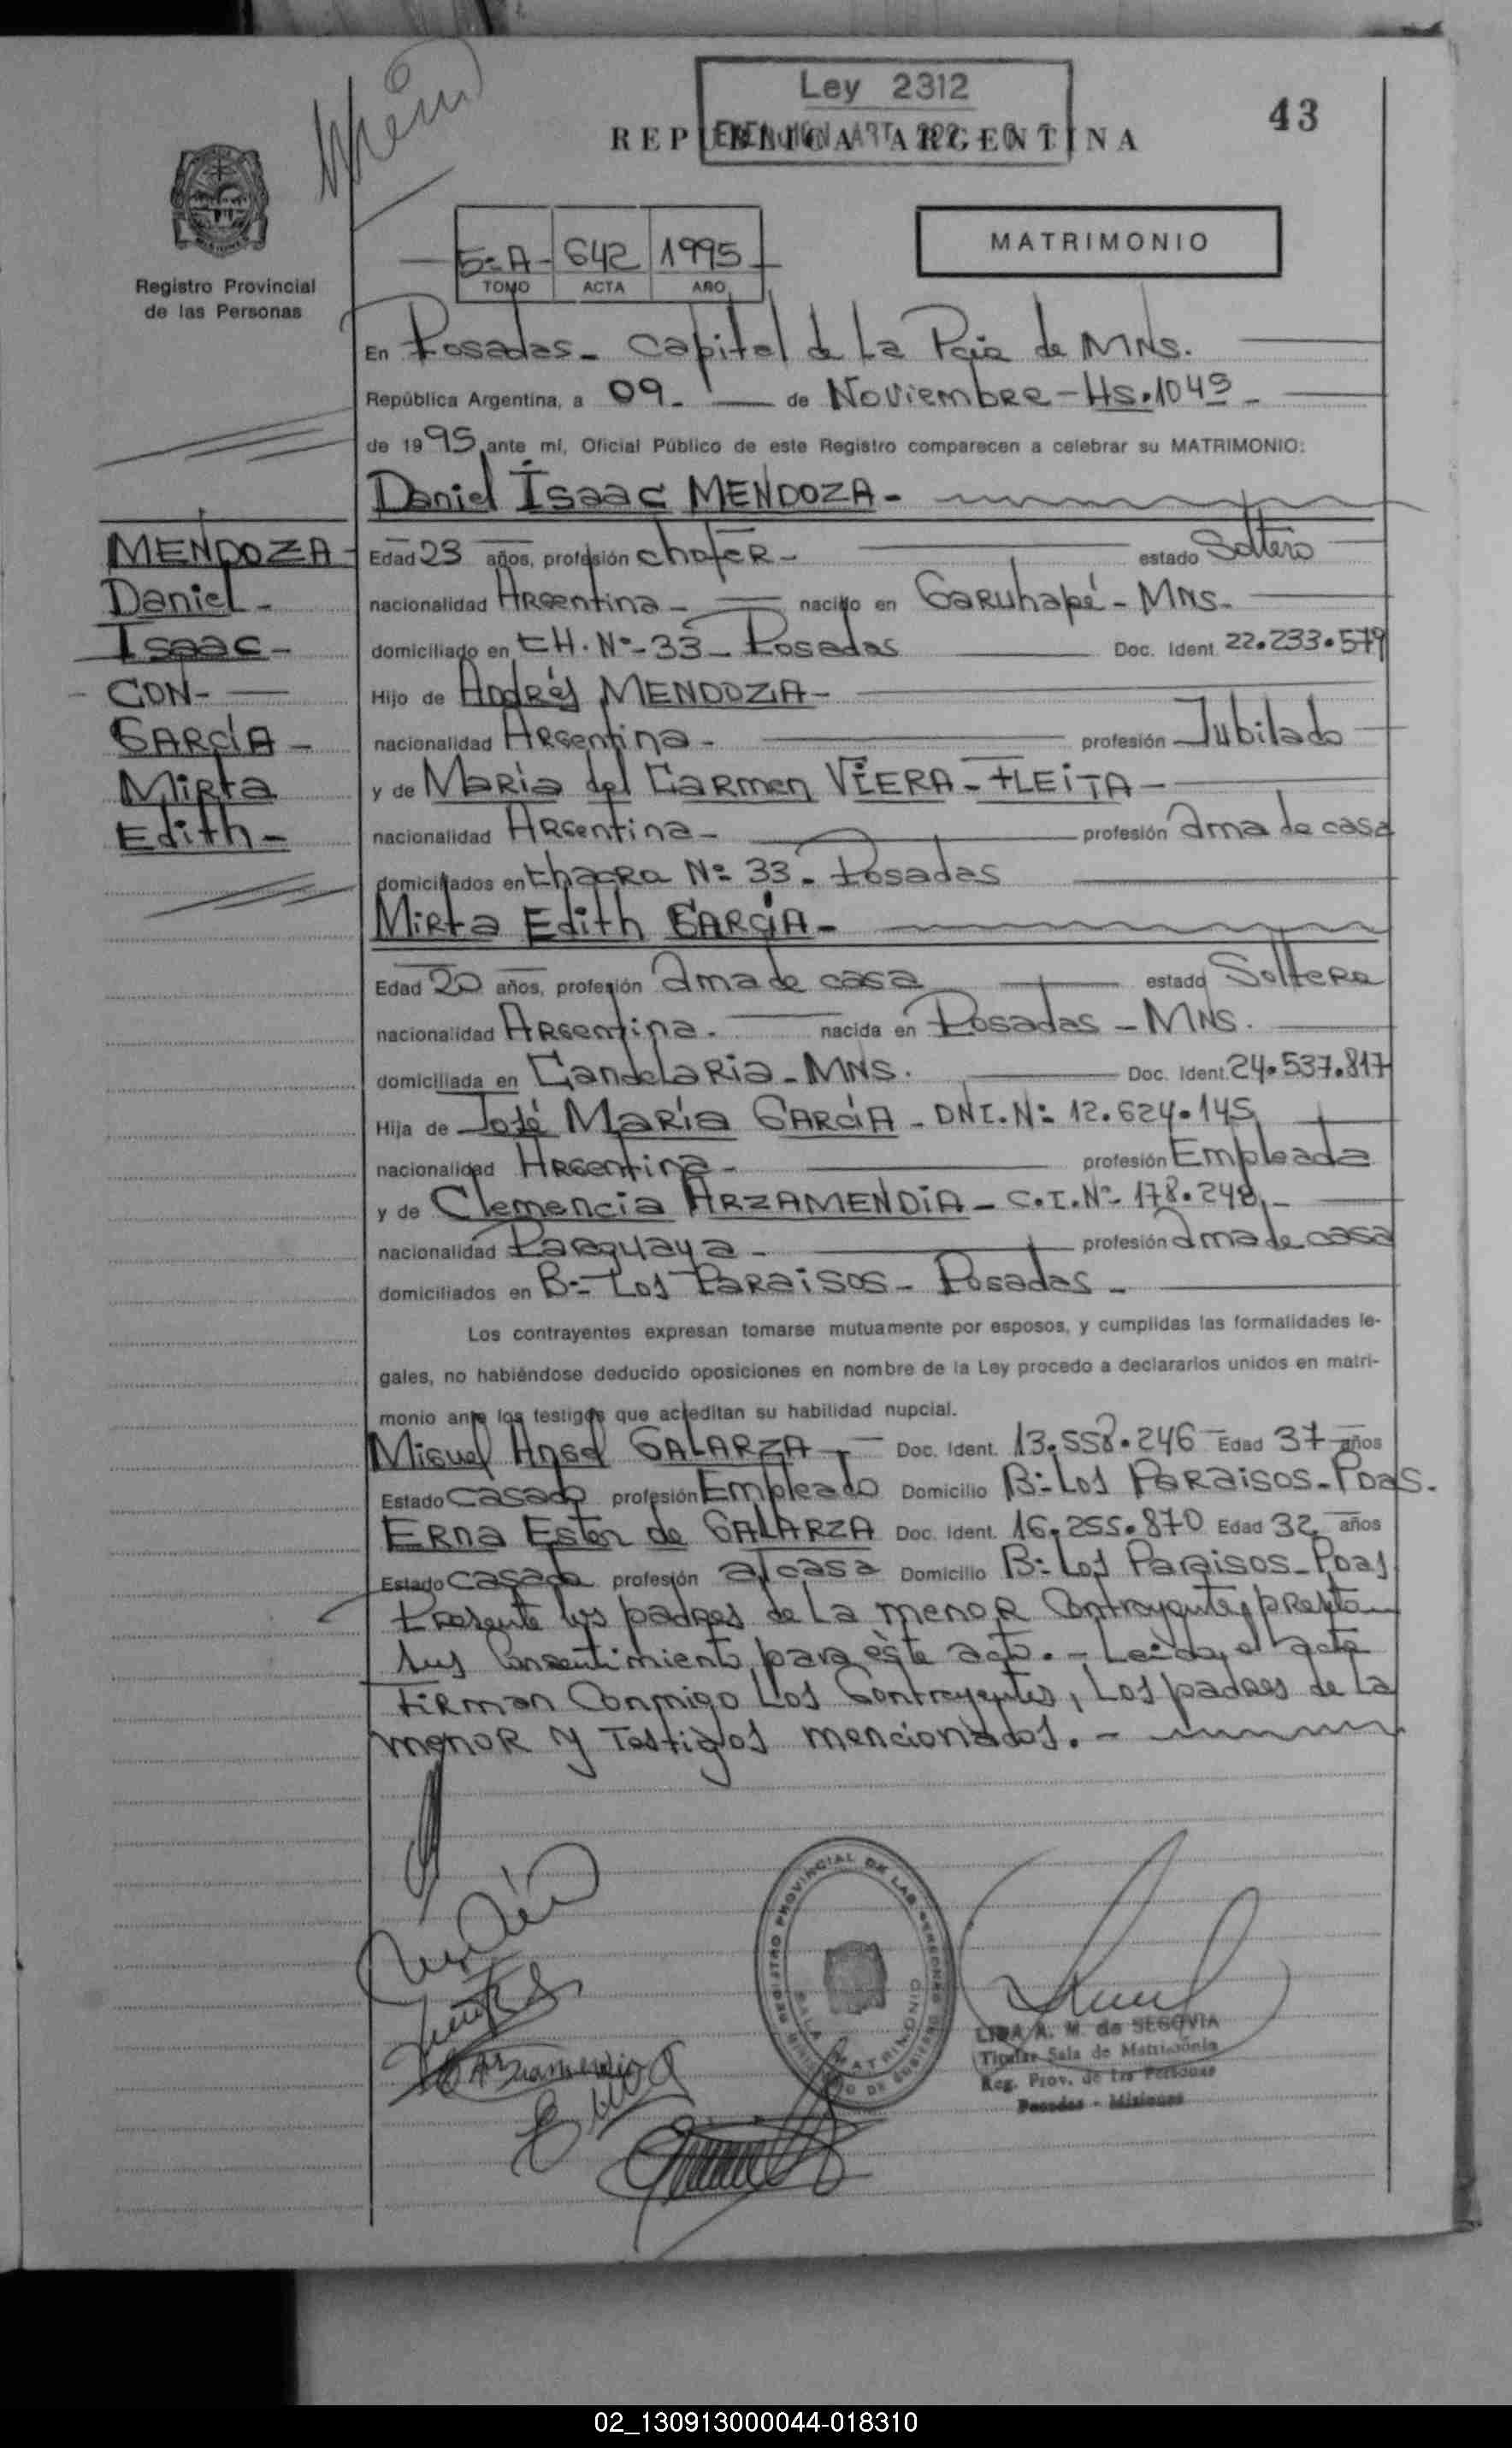 Ley 2312
43
REPUBLICA ARGENTINA
5º A - 642 1995
TOMO ACTA AÑO
MATRIMONIO
Registro Provincial
de las Personas
En Posadas - Capital de La Pcia de MNS.
República Argentina, a 09 - de Noviembre - Hs. 1045 -
de 1995 ante mí, Oficial Público de este Registro comparecen a celebrar su MATRIMONIO:
Daniel Isaac MENDOZA -
MENDOZA -
Daniel -
Isaac -
- CON -
GARCÍA -
Mirta
Edith -
Edad 23 años, profesión chofer - estado Soltero
nacionalidad Argentina - nacido en Garuhapé - MNS -
domiciliado en CH. Nº - 33 - Posadas Doc. Ident. 22.233.579
Hijo de Andrés MENDOZA -
nacionalidad Argentina - profesión Jubilado
y de María del Carmen VIERA - FLEITA -
nacionalidad Argentina - profesión ama de casa
domiciliados en Chacra Nº 33 - Posadas
Mirta Edith GARCÍA -
Edad 20 años, profesión ama de casa estado Soltera
nacionalidad Argentina - nacida en Posadas - MNS.
domiciliada en Candelaria - MNS. Doc. Ident. 24.537.817
Hija de José María GARCÍA - DNI. Nº 12.624.145
nacionalidad Argentina - profesión Empleada
y de Clemencia ARZAMENDIA - C.I. Nº 178.248 -
nacionalidad Paraguaya - profesión ama de casa
domiciliados en Bº - Los Paraisos - Posadas -
Los contrayentes expresan tomarse mutuamente por esposos, y cumplidas las formalidades le-
gales, no habiéndose deducido oposiciones en nombre de la Ley procedo a declararlos unidos en matri-
monio ante los testigos que acreditan su habilidad nupcial.
Miguel Angel GALARZA - Doc. Ident. 13.558.246 Edad 37 años
Estado Casado profesión Empleado Domicilio Bº Los Paraisos - Pdas.
Erna Ester de GALARZA Doc. Ident. 16.255.870 Edad 32 años
Estado Casada profesión a/casa Domicilio Bº Los Paraisos - Pdas
Presente los padres de la menor Contrayente, prestan
sus Consentimiento para este acto. - Leida el acta
Firman Conmigo Los Contrayentes, Los padres de La
menor y Testigos mencionados. -
REGISTRO PROVINCIAL DE LAS PERSONAS
MINISTERIO DE GOBIERNO
SALA MATRIMONIO
LIDIA A. M. de SEGOVIA
Titular Sala de Matrimonio
Reg. Prov. de las Personas
Posadas - Misiones
02_130913000044-018310